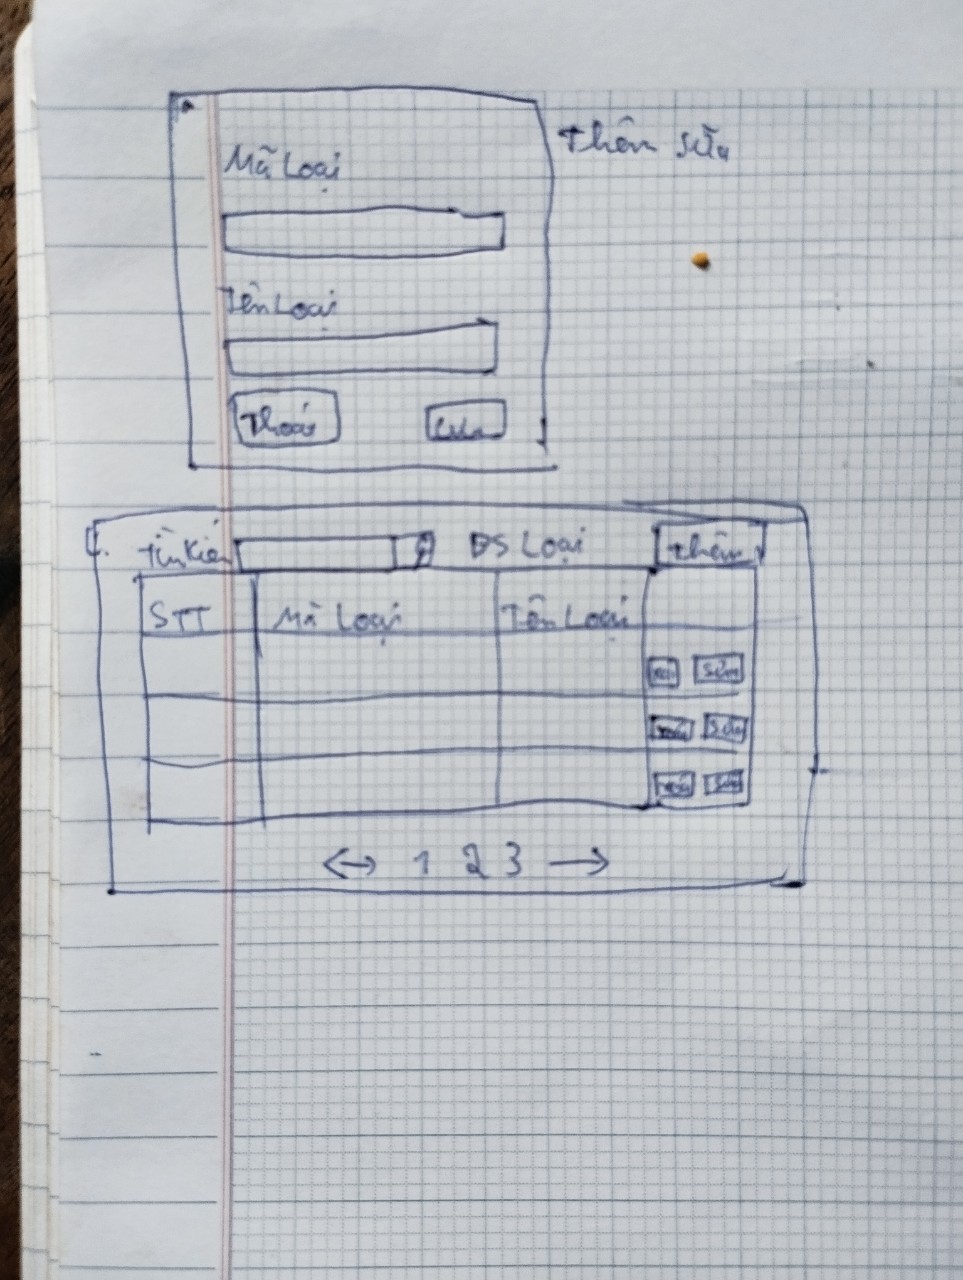 Thêm sửa
Mã Loại
Tên Loại
Thoát
Lưu
Tìm Kiếm ĐS Loại Thêm
STT Mã Loại Tên Loại
Xóa Sửa
Xóa Sửa
Xóa Sửa
<-> 1 2 3 →